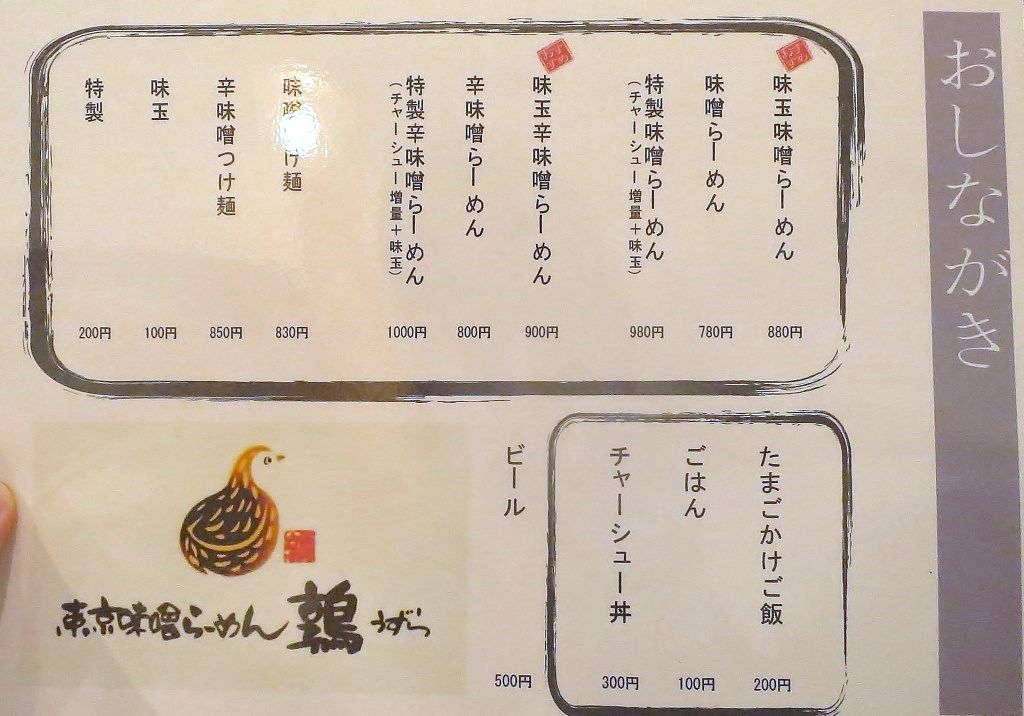 おしながき
おすすめ
味玉味噌らーめん
880円
味噌らーめん
780円
特製味噌らーめん
(チャーシュー増量+味玉)
980円
おすすめ
味玉辛味噌らーめん
900円
辛味噌らーめん
800円
特製辛味噌らーめん
(チャーシュー増量+味玉)
1000円
味噌つけ麺
830円
辛味噌つけ麺
850円
味玉
100円
特製
200円
たまごかけご飯
200円
ごはん
100円
チャーシュー丼
300円
ビール
500円
東京味噌らーめん 鶉 うずら